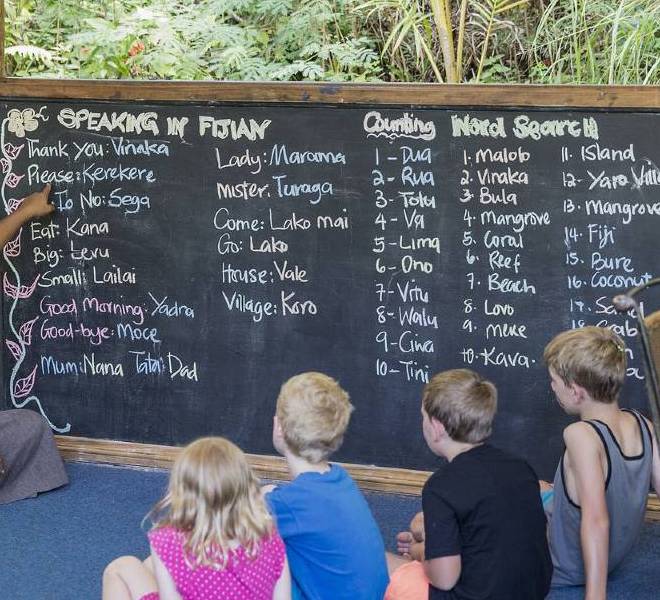 SPEAKING IN FIJIAN
Thank you: Vinaka
Please: Kerekere
To No: Sega
Eat: Kana
Big: Levu
Small: Lailai
Good Morning: Yadra
Good-bye: Moce
Mum: Nana Tata: Dad
Lady: Marama
Mister: Turaga
Come: Lako mai
Go: Lako
House: Vale
Village: Koro
Counting
1 - Dua
2 - Rua
3 - Tolu
4 - Va
5 - Lima
6 - Ono
7 - Vitu
8 - Walu
9 - Ciwa
10 - Tini
Word Search
1. Malolo
2. Vinaka
3. Bula
4. Mangrove
5. Coral
6. Reef
7. Beach
8. Lovo
9. meke
10. Kava.
11. Island
12. Yaro
13. Mangrove
14. Fiji
15. Bure
16. Coconut
17.
18. Crab